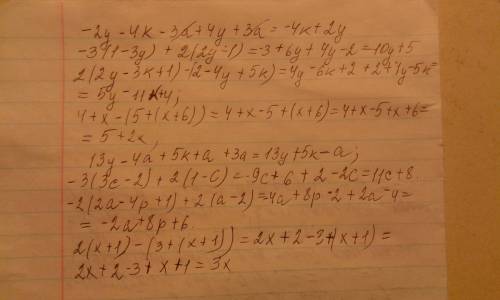 -2y-4к-3a+4y+3a=-4к+2y
-3(1-3y)+2(2y-1)=-3+6y+4y-2=10y+5
2(2y-3к+1)-(2-4y+5к)=4y-6к+2+2+1y-5к=
=5y-11к+4;
4+x-(5+(x+6))=4+x-5+(x+6)=4+x-5+x+6=
=5+2x;
13y-4a+5к+a+3a=13y+5к-a;
-3(3c-2)+2(1-c)=-9c+6+2-2c=11c+8
-2(2a-4p+1)+2(a-2)=4a+8p-2+2a-4=
=-2a+8p+6
2(x+1)-(3+(x+1))=2x+2-3+(x+1)=
2x+2-3+x+1=3x